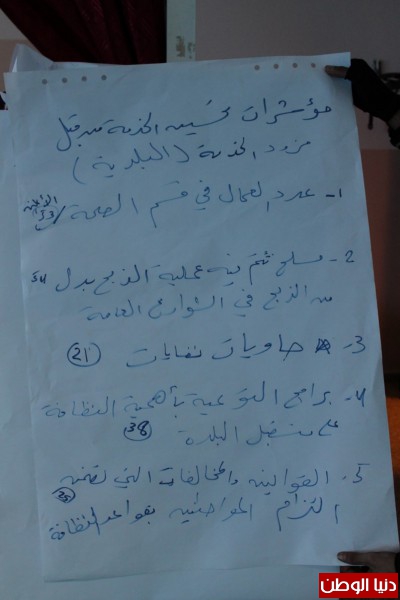 مؤشرات تحسين الخدمة من قبل
مزود الخدمة (البلدية)
1- عدد العمال في قسم الصحة 53
2- مسلخ تتم فيه عملية الذبح بدل 54
من الذبح في الشوارع العامة
3- حاويات نفايات (21)
4- برامج التوعية بأهمية النظافة
على مستقبل البلدة (38)
5- القوانين والمخالفات التي تضمن
التزام المواطنين بقواعد النظافة
دنيا الوطن